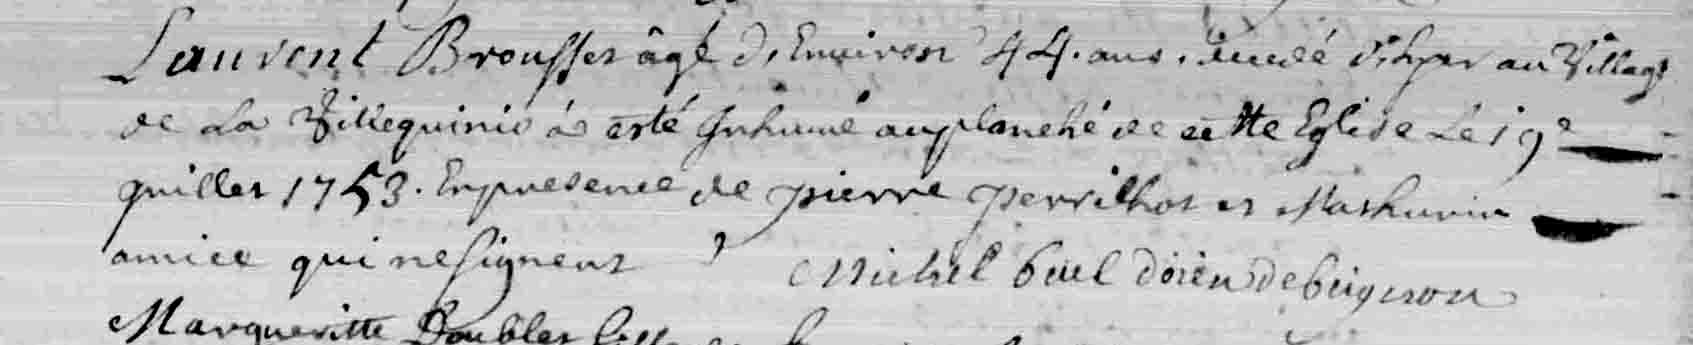 Laurent Brousset âgé d'Environ 44. ans. decedé d'hyer au Village
de La Villequinio a esté Inhumé au planché de cette Eglise Le 19e
juillet 1753. En presence de pierre perrilhot et Mathurin
amice qui ne signent Michel buel doïen de beignon
Margueritte Doublet